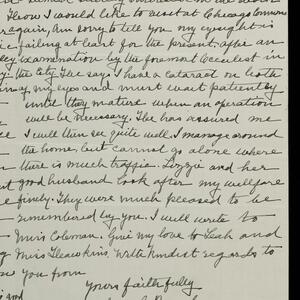 How I would like to visit at Chicago Commons
again, Am sorry to tell you my eyesight is
failing at least for the present, after an
examination by the foremost Occulest in
the City. He says I have a cataract on both
my eyes and must wait patiently
until they mature when an operation
will be necessary. He has assured me
I will then see quite well. I manage around
the home, but cannot go alone where
there is much traffic. Lizzie and her
good husband look after my wellfare
finely. They were much pleased to be
remembered by you. I will write to
Miss Coleman. Give my love to Leah and
Miss Hawkins, with kindest regards to
you from
Yours faithfully